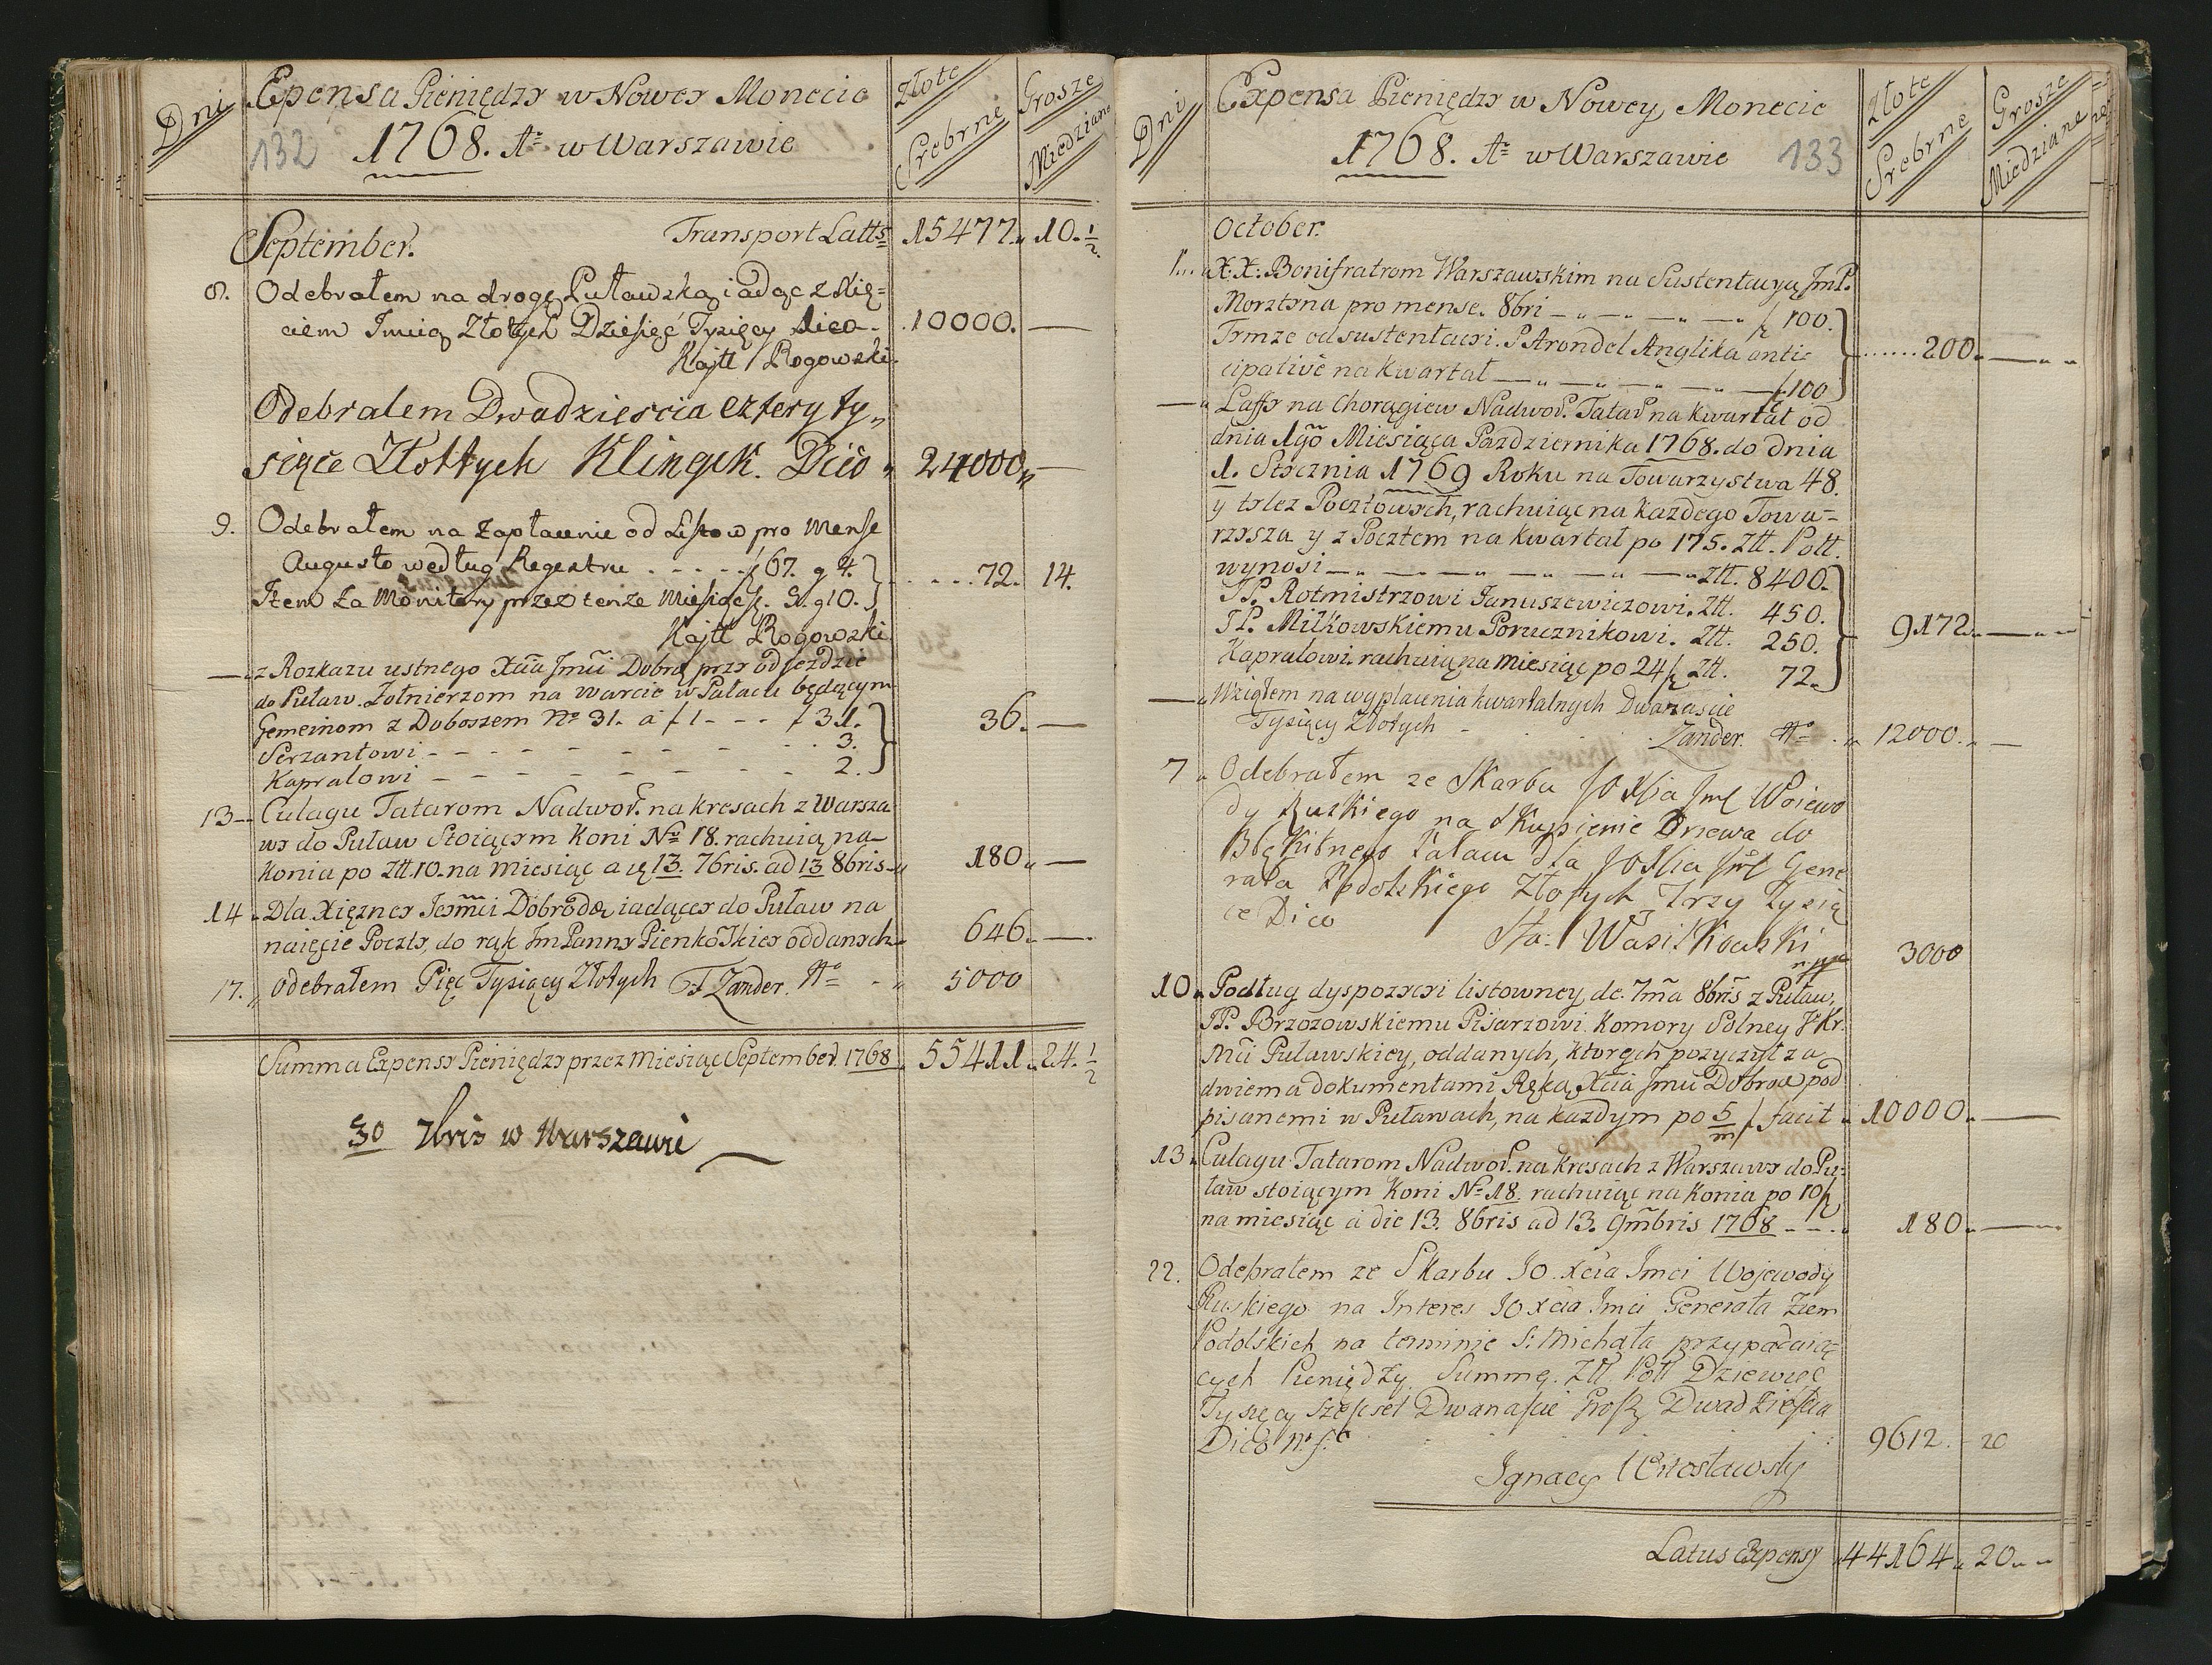 Dni
Epensa Pieniędzy w Nowey Monecie
132 1768. Aº w Warszawie
Złote Srebrne
Grosze Miedziane
September. Transport Latts 15477. 10. 1/2
8. Odebrałem na drogę Puławską iadąc z Xię=
ciem Imcią Złotych Dziesięć Tysięcy dico - 10000. —
Kajtt Rogowski
Odebralem Dwadziescia cztery ty„
siące Złottych Klingek. Dico „ 24000 „ —
9. Odebrałem na zapłacenie od Listow pro Mense
Augusto według Regestru . - - - f 67. g 4.
Item za Monitory przez tenze Miesiąc f. 5. g 10. . . . . 72. 14.
Kajtt Rogowski
— z Rozkazu ustnego Xcia Jmci Dobrǫ przy odjezdzie
do Puław. Zołnierzom na warcie w Pałacu będącym
Gemeinom z Doboszem Nº 31. a f 1 - - - f 31.
Serzantowi - - - - - - - - 3. 36. —
Kapralowi - - - - - - - - 2.
13 — Culagu Tatarom Nadwor. na kresach z Warsza
wy do Puław Stoiącym Koni Nº 18. rachuią na
Konia po Ztt. 10. na miesiąc a 13. 7bris. ad 13 8bris „ 180 „ —
14 „ Dla Xięzney Jeymci Dobrodǫ iadącey do Puław na
naięcie Poczty, do rąk Jm Panny Pienkoskiey oddanych „ 646. —
17. „ odebrałem Pięć Tysięcy Złotych F Zander. „ 5000
Summa Expensy Pieniędzy przez Miesiąc September 1768. 55411 „ 24. 1/2
30 7bris w Warszawie
Dni
Expensa Pieniędzy w Nowey Monecie
1768. Aº w Warszawie 133
Złote Srebrne
Grosze Miedziane
October.
1. „ X.X. Bonifratrom Warszawskim na Sustentacyą JmP.
Morztyna pro mense. 8bri - „ - „ - „ - „ - 100.
Tymze od sustentacyi. P Arondel Anglika anti= . . . . . . 200 „ — „ „
cipativè na Kwartał - „ - „ - „ - „ - 100
— „ Laffy na Chorągiew Nadwor. Tatar na kwartał od
dnia 1gō Miesiąca Pazdziernika 1768. do dnia
1. Stycznia 1769 Roku na Towarzystwa 48.
y tylez Pocztowych, rachuiąc na kazdego Towa=
rzysza y z Pocztem na kwartał po 175. Ztt. Pott.
wynosi - „ - „ - „ - „ - „ Ztt. 8400.
JP. Rotmistrzowi Januszewiczowi. Ztt. 450.
JP. Miłkowskiemu Porucznikowi. Ztt. 250. 9172 „ — „ „
Kapralowi. rachuią na miesiąc po 24 Ztt. 72.
— „ Wziąłem na wypłacenia kwartalnych Dwanascie
Tysięcy Złotych Zander. „ 12000 „ —
7 „ Odebrałem ze Skarbu JO Xcia Jmć Woiewo
dy Ruskiego na Skupienie Drzewa do
Błękitnego Pałacu dla JO Xcia Jmć Gene
rała Podolskiego Złotych Trzy Tysią
ce Dico
Sta: Wasilkowski 3000
10 „ Podług dyspozycyi listowney de. 7mā 8brīs z Puław.
JP. Brzozowskiemu Pisarzowi Komory Solney J Kr.
Mci Puławskiey, oddanych, ktorych pozyczył za
dwiema dokumentami Ręką Xcia Jmci Dobroǫ pod
pisanemi w Puławach, na kazdym po 5/m facit „ 10000 „ —
13 „ Culagu Tatarom Nadwor. na kresach z Warszawy do Pu=
ław stoiącym Koni Nº 18. rachuiąc na konia po 10
na miesiąc à die 13. 8bris ad 13. 9mbris 1768 - - - „ 180 „ —
22. Odebrałem ze Skarbu JO. Xcia Jmci Wojewody
Ruskiego na Interes JO Xcia Jmci Generała Ziem
Podolskich na terminie S: Michała przypadaią=
cych Pieniędzy Summę. Ztt. Pott Dziewięć
Tysięcy szescset Dwanascie Groszy Dwadziescia
Dico 9612. 20
Ignacy
Latus Expensy 44164 „ 20 „ „